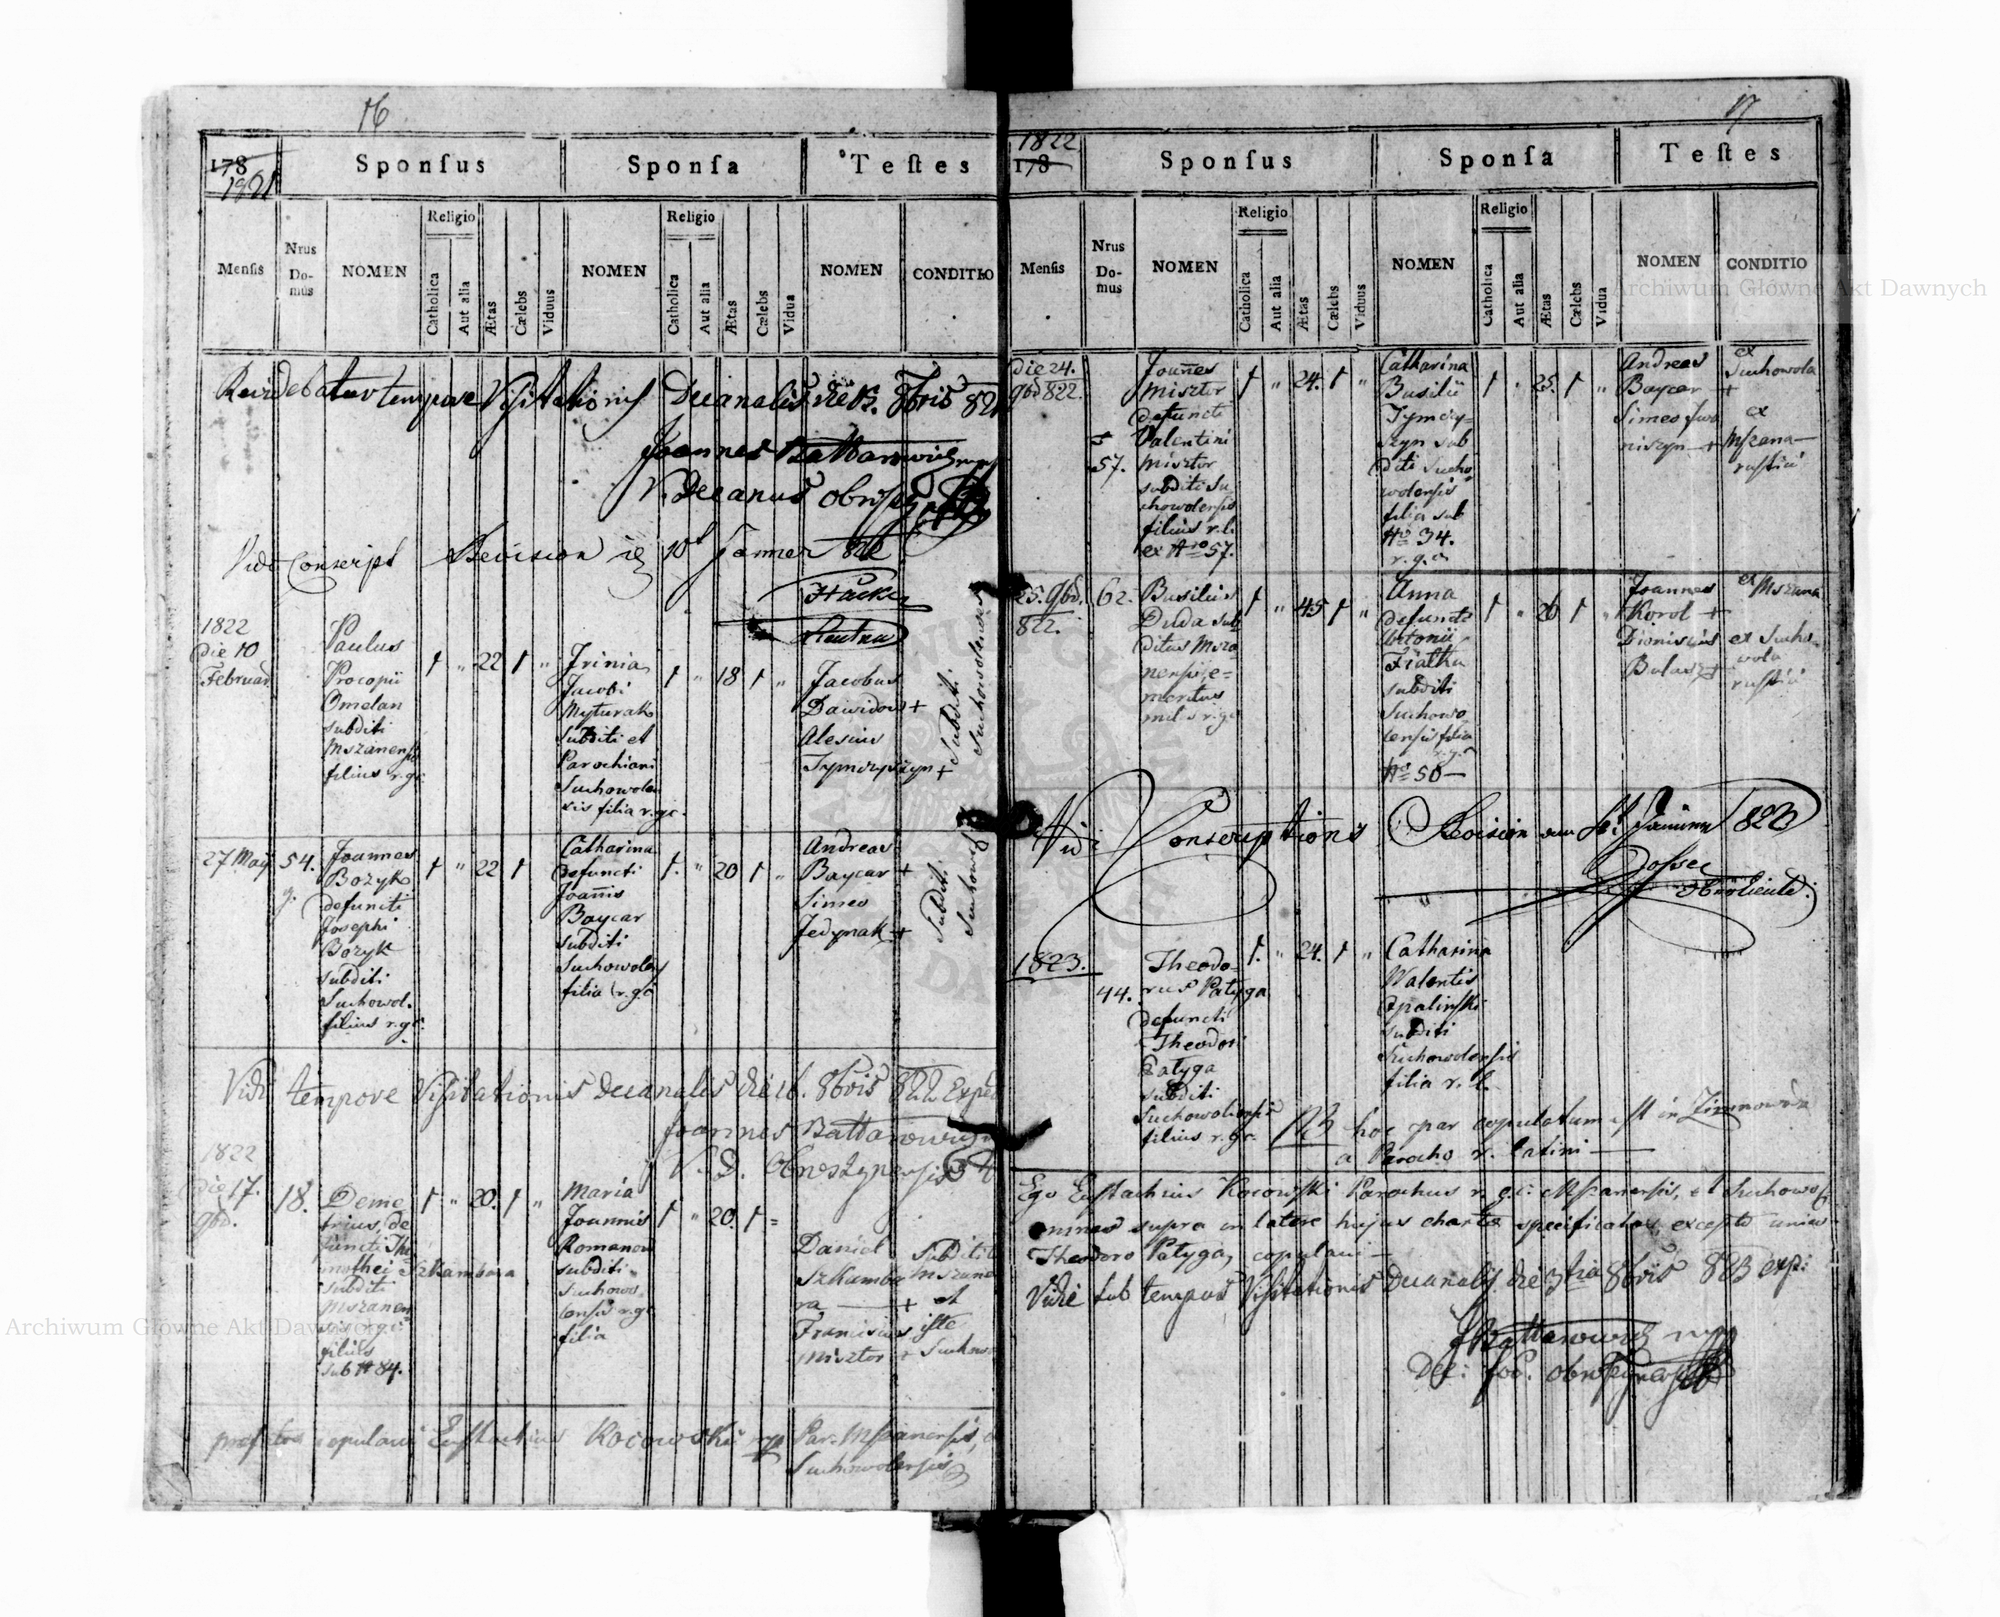 16
178
1821
Sponſus
Sponſa
Teſtes
Menſis
Nrus Do-mus
NOMEN
Religio
Catholica
Aut alia
Ætas
Cælebs
Viduus
NOMEN
Religio
Catholica
Aut alia
Ætas
Cælebs
Vidua
NOMEN
CONDITIO
tempore Visitationis Decanalis die 8bris 821
Joannes Battarowicz mp
V. Decanus
Vidi Conscript Revision 10t Jänner
1822
die 10
Februar
Paulus
Procopii
Omelan
subditi
Mszanensis
filius r.gc.
† " 22 † "
Irinia
Jacobi
Myturak
subditi et
Parochiani
Suchowolen
sis filia r.gc.
† " 18 † "
Jacobus
Dawidow +
Alesius
Tymczyszyn +
Subditi
Suchowolenses
27 Maij
54.
Joannes
Bozyk
defuncti
Josephi
Bozyk
subditi
Suchowol.
filius r.gc.
† " 22 †
Catharina
defuncti
Joannis
Baycar
subditi
Suchowolen
filia r.gc
†. " 20 † "
Andreas
Baycar +
Simeo
Jedynak +
Subditi
Vidi tempore Visitationis Decanalis die 16. 8bris 822
Joannes Battarowicz
V. D.
1822
die 17.
9br.
18.
Deme
trius, de
functi Thi
mothei Szkambara
subditi
Mszanen
sis r.gc
filius
sub N 84.
† " 20. † "
Maria
Joannis
Romanow
subditi
Suchowo
lensis r.gc
filia
† " 20. † =
Daniel
Szkamba
ra — +
Franciscus
Misztor +
Subditi
Mszana
et
iste
Suchowo
copulavi Eustachius Kocowski mp Par. Mszanensis, et
Suchowolensis
17
1822
178
Sponſus
Sponſa
Teſtes
Menſis
Nrus Do-mus
NOMEN
Religio
Catholica
Aut alia
Ætas
Cælebs
Viduus
NOMEN
Religio
Catholica
Aut alia
Ætas
Cælebs
Vidua
NOMEN
CONDITIO
Die 24.
9bris 822.
57.
Joannes
Misztor
defuncti
Valentini
Misztor
subditi Su
chowolensis
filius r.l.
ex Nro 57.
† " 24. † "
Catharina
Basilii
Tymczy-
szyn sub
diti Sucho
wolensis
filia sub
No 34.
r.g.c.
† " 25. † "
Andreas
Baycar +
Simeo Iwa
niszyn — +
ex
Suchowola
ex
Mszana —
rustici
25. 9br.
822.
62.
Basilius
Duda sub
ditus Msza
nensis, e=
meritus
miles r.gc
† " 45 † "
Anna
defuncti
Antonii
Fialka
subditi
Suchowo
lensis filia
r.g.c
No 50 —
† " 26 † "
Joannes
Korol +
Dionisius
Balasz +
ex Mszana
ex Sucho
wola
rustici
Vidi Conscriptions Revision am Jänner 823
1823.
44.
Theodo-
rus Patyga
defuncti
Theodori
Patyga
subditi
Suchowolensis
filius r.gc.
†. " 24. † "
Catharina
Walentis
Opalinski
subditi
Suchowolensis
filia r. l.
NB hoc par copulatum est in Zimnowoda
a Parocho r. latini —
Ego Eustachius Kocowski Parochus r. g.c. Mszanensis, et Suchowol
omnes supra in latere hujus charta specificatos, excepto unico
Theodoro Patyga, copulavi —
Vidi sub tempus Visitationis Decanalis die 3tia 8bris 823
JBattarowicz mp
Archiwum Główne Akt Dawnych
Archiwum Główne Akt Dawnych